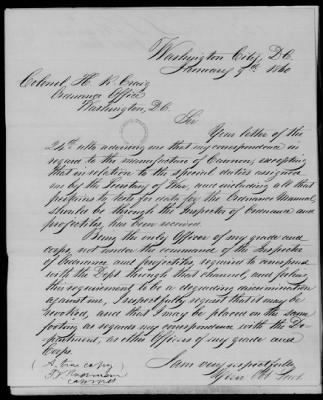 Washington City, D.C.
January 9th 1860
Colonel H. K. Craig
Ordnance Office
Washington, D.C.
Sir
Your letter of the
24th ulto requiring me that my correspondence in
regard to the manufacture of Cannon, excepting
that in relation to the special duties assigned
me by the Secretary of War, and including all that
pertains to tests for data for the Ordnance Manual,
should be through the Inspector of Ordnance and
projectiles, has been received.
Being the only Officer of my grade and
corps, not under the command of the Inspector
of Ordnance and projectiles, required to correspond
with the Dept through that channel, and feeling
this requirement to be a degrading discrimination
against me, I respectfully request that it may be
revoked, and that I may be placed on the same
footing as regards my correspondence with the De-
partment, as other Officers of my grade and
Corps.
I am very respectfully
Your Obt Svt
(A true copy)
T. J. Rodman